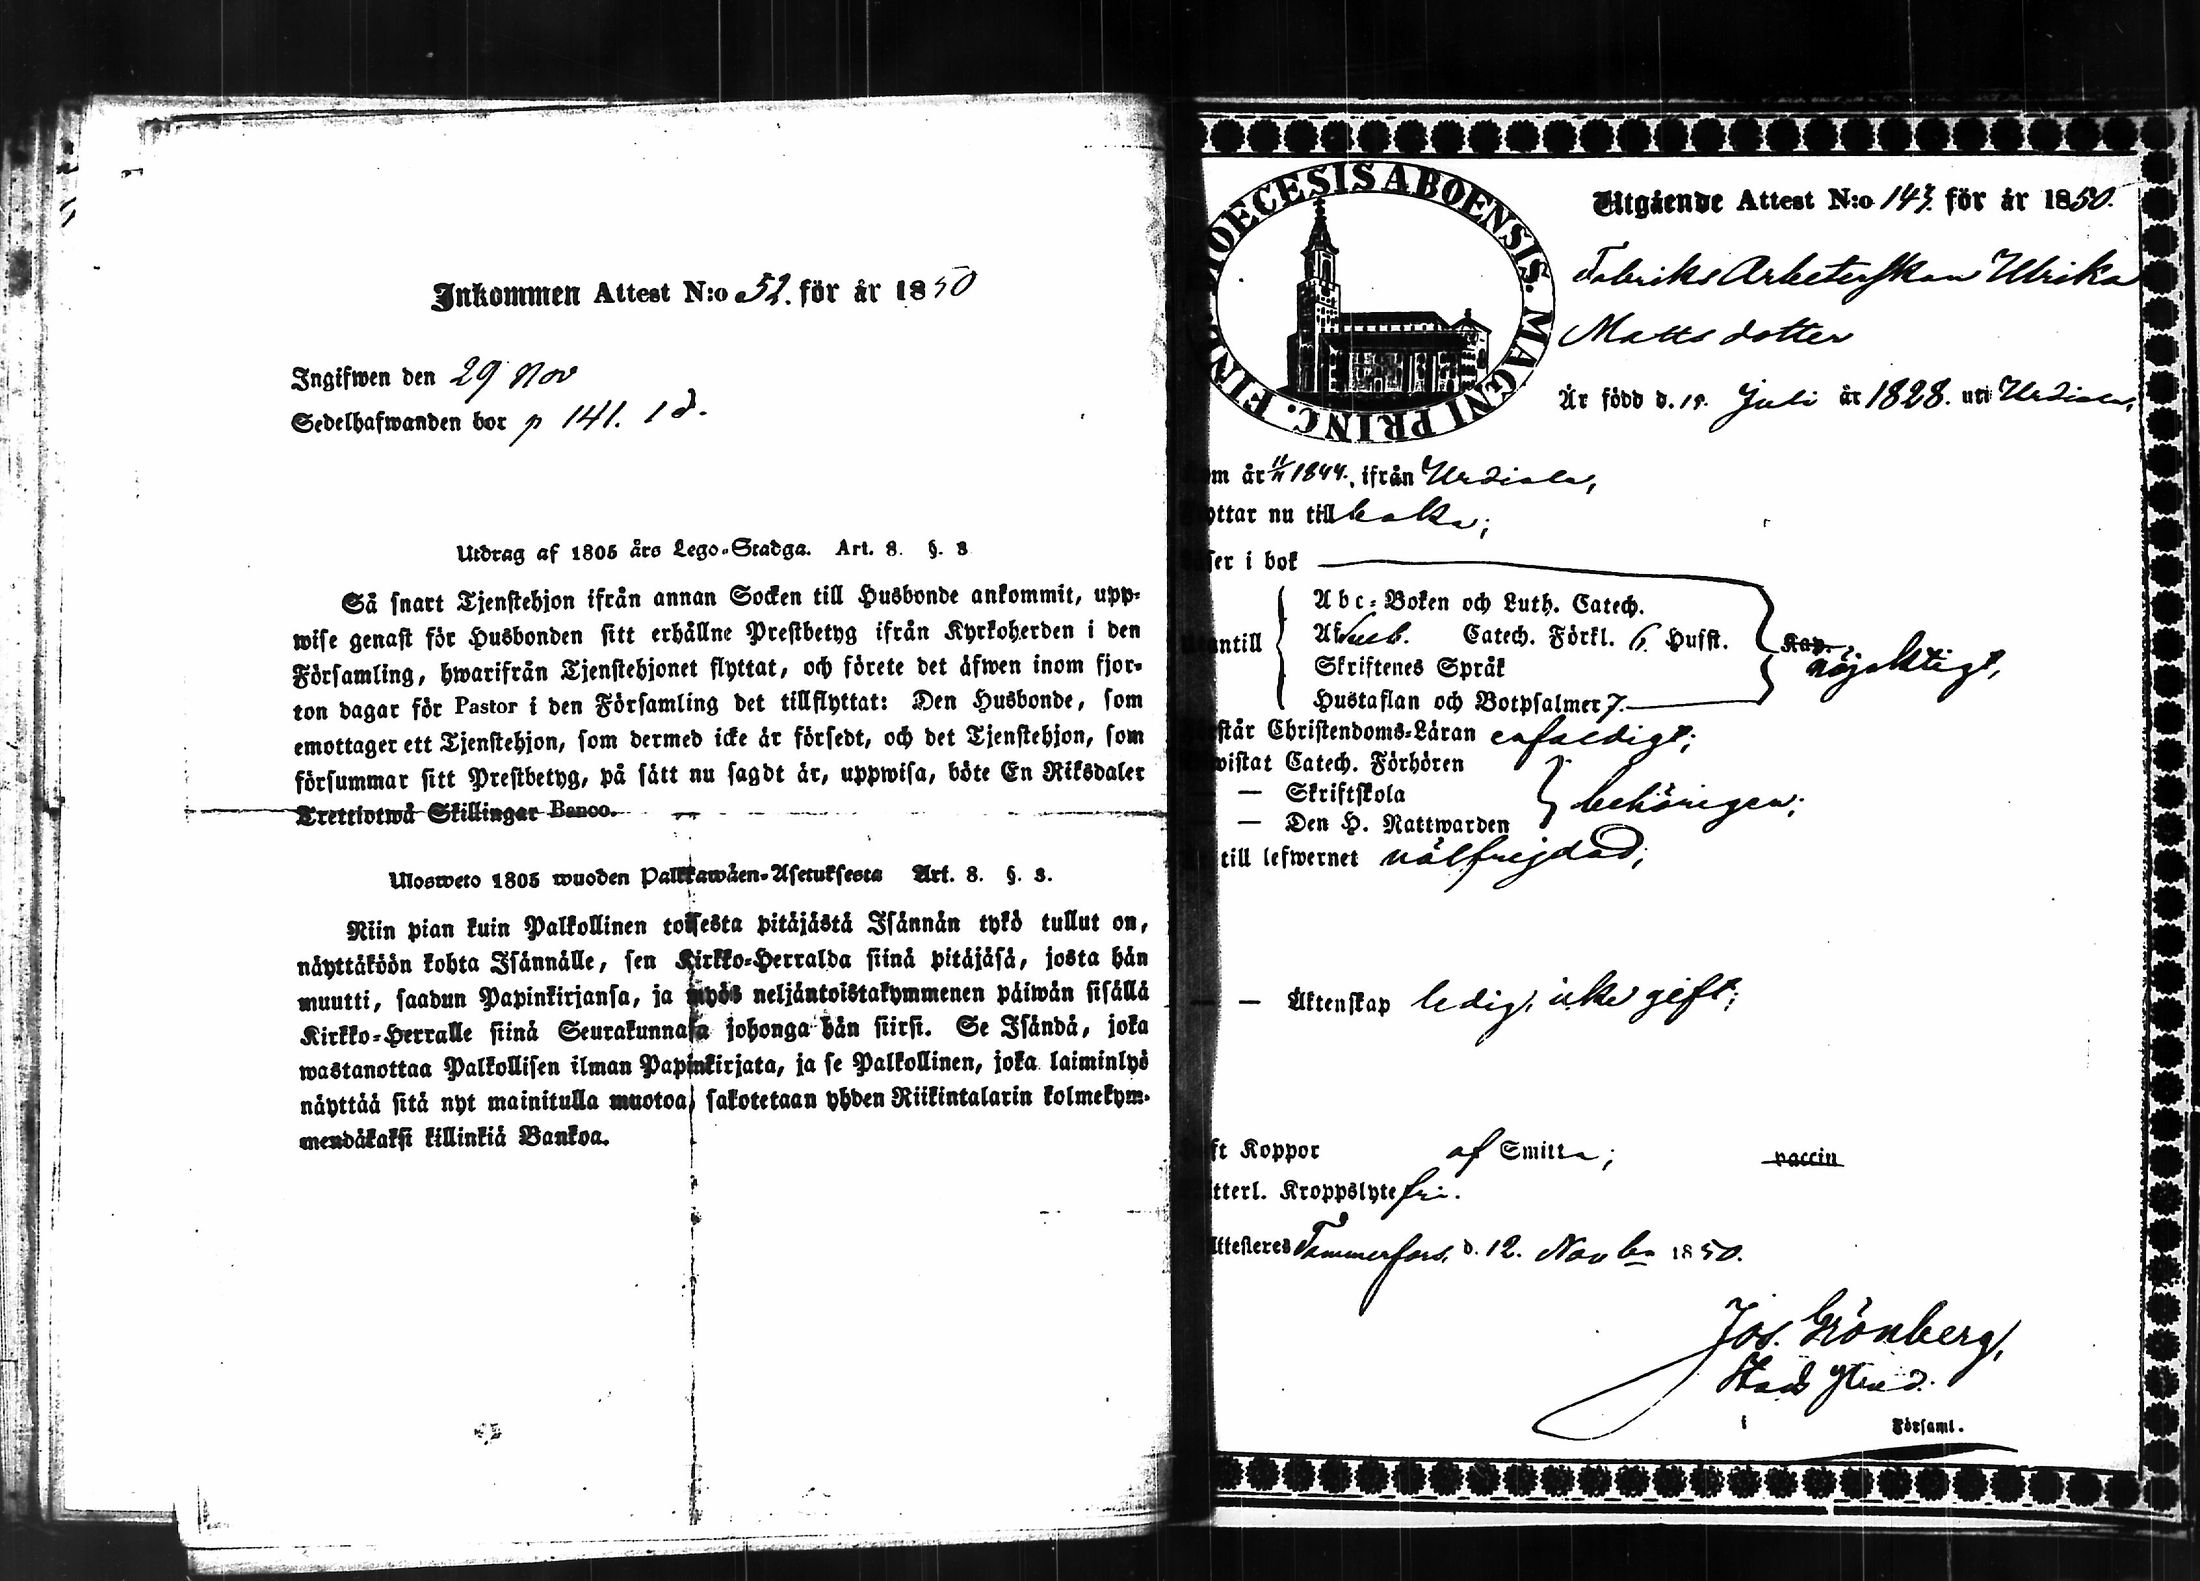 Inkommen Attest N:o 52. för år 1850
Ingifwen den 29 Nov
Sedelhafwanden bor p 141. 1 d.
Utdrag af 1805 års Lego-Stadga. Art. 8. §. 3
Så snart Tjenstehjon ifrån annan Socken till Husbonde ankommit, upp-
wise genast för Husbonden sitt erhållne Prestbetyg ifrån Kyrkoherden i den
Församling, hwarifrån Tjenstehjonet flyttat, och förete det äfwen inom fjor-
ton dagar för Pastor i den Församling det tillflyttat: Den Husbonde, som
emottager ett Tjenstehjon, som dermed icke är försedt, och det Tjenstehjon, som
försummar sitt Prestbetyg, på sätt nu sagdt är, uppwisa, böte En Riksdaler
Trettiotwå Skillingar Banco.
Ulosweto 1805 wuoden Palkkawäen-Asetuksesta Art. 8. §. 3.
Niin pian kuin Palkollinen toisesta pitäjästä Isännän tykö tullut on,
näyttäköön kohta Isännälle, sen Kirkko-Herralda siinä pitäjäsä, josta hän
muutti, saadun Papinkirjansa, ja myös neljäntoistakymmenen päiwän sisällä
Kirkko-Herralle siinä Seurakunnasa johonga hän siirsi. Se Isändä, joka
wastanottaa Palkollisen ilman Papinkirjata, ja se Palkollinen, joka laiminlyö
näyttää sitä nyt mainitulla muotoa, sakotetaan yhden Riikintalarin kolmekym-
mendäkaksi killinkiä Bankoa.
DIOECESIS ABOENSIS. MAGNI PRINC. FINL.
Utgående Attest N:o 143. för år 1850.
Fabriks Arbeterskan Ulrika
Matts dotter
Är född d. 15. Juli år 1828. uti Urdiala,
om år 11/11 1844., ifrån Urdiala,
ottar nu till baka;
ser i bok
Abc-Boken och Luth. Catech.
antill Catech. Förkl. 6 Hufst. Kap. nöjaktigt,
Skriftenes Språk
Hustaflan och Botpsalmer 7.
står Christendoms-Läran enfaldigt;
wistat Catech. Förhören
— Skriftskola behörigen;
— Den H. Nattwarden
till lefwernet välfrejdad;
— — Äktenskap ledig, icke gift;
ft Koppor af Smitta; vaccin
tterl. Kroppslyte fri.
Attesteres Tammerfors, d. 12. Novbr 1850.
Jos. Grönberg,
i Församl.